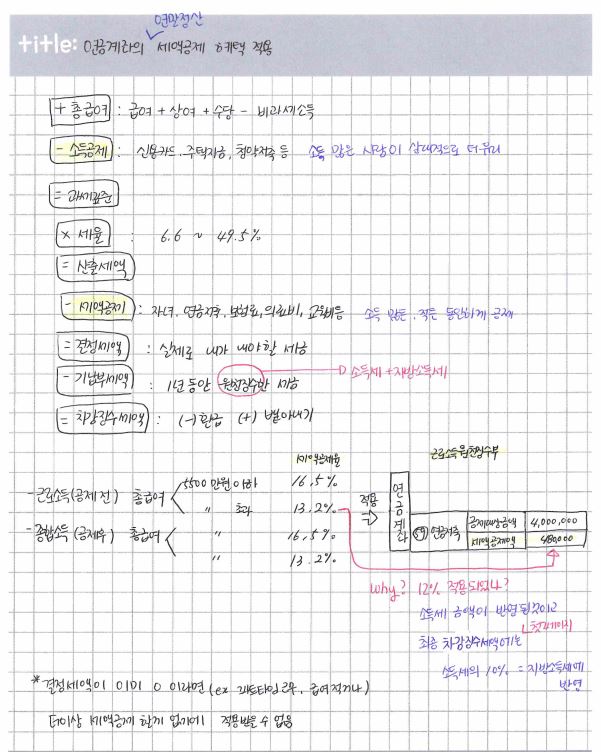 연말정산
title: 연금계좌의 세액공제 혜택 적용
+ 총급여 : 급여 + 상여 + 수당 - 비과세소득
- 소득공제 : 신용카드, 주택자금, 청약저축 등 소득 많은 사람이 상대적으로 더 유리
= 과세표준
× 세율 : 6.6 ~ 49.5%
= 산출세액
- 세액공제 : 자녀, 연금저축, 보험료, 의료비, 교육비등 소득 많든, 적든 동일하게 공제
= 결정세액 : 실제로 내가 내야할 세금
- 기납부세액 : 1년 동안 원천징수한 세금 → 소득세 + 지방소득세
= 차감징수세액 : (-) 환급 (+) 뱉어내기
세액공제율 근로소득원천징수부
- 근로소득 (공제 전) 총급여 5500 만원 이하 16.5%
" 초과 13.2%
- 종합소득 (공제후) 총급여 " 16.5%
" 13.2%
적용 ⇒
연금계좌
59 연금저축 공제대상금액 4,000,000
세액공제액 480,000
why? 12% 적용되었나?
소득세 금액이 반영된것이고
첫페이지
최종 차감징수세액에는
소득세의 10% = 지방소득세에
반영
* 결정세액이 이미 0 이라면 (ex 파트타임 근무, 급여 적거나)
더이상 세액공제 할게 없기에 적용받을 수 없음